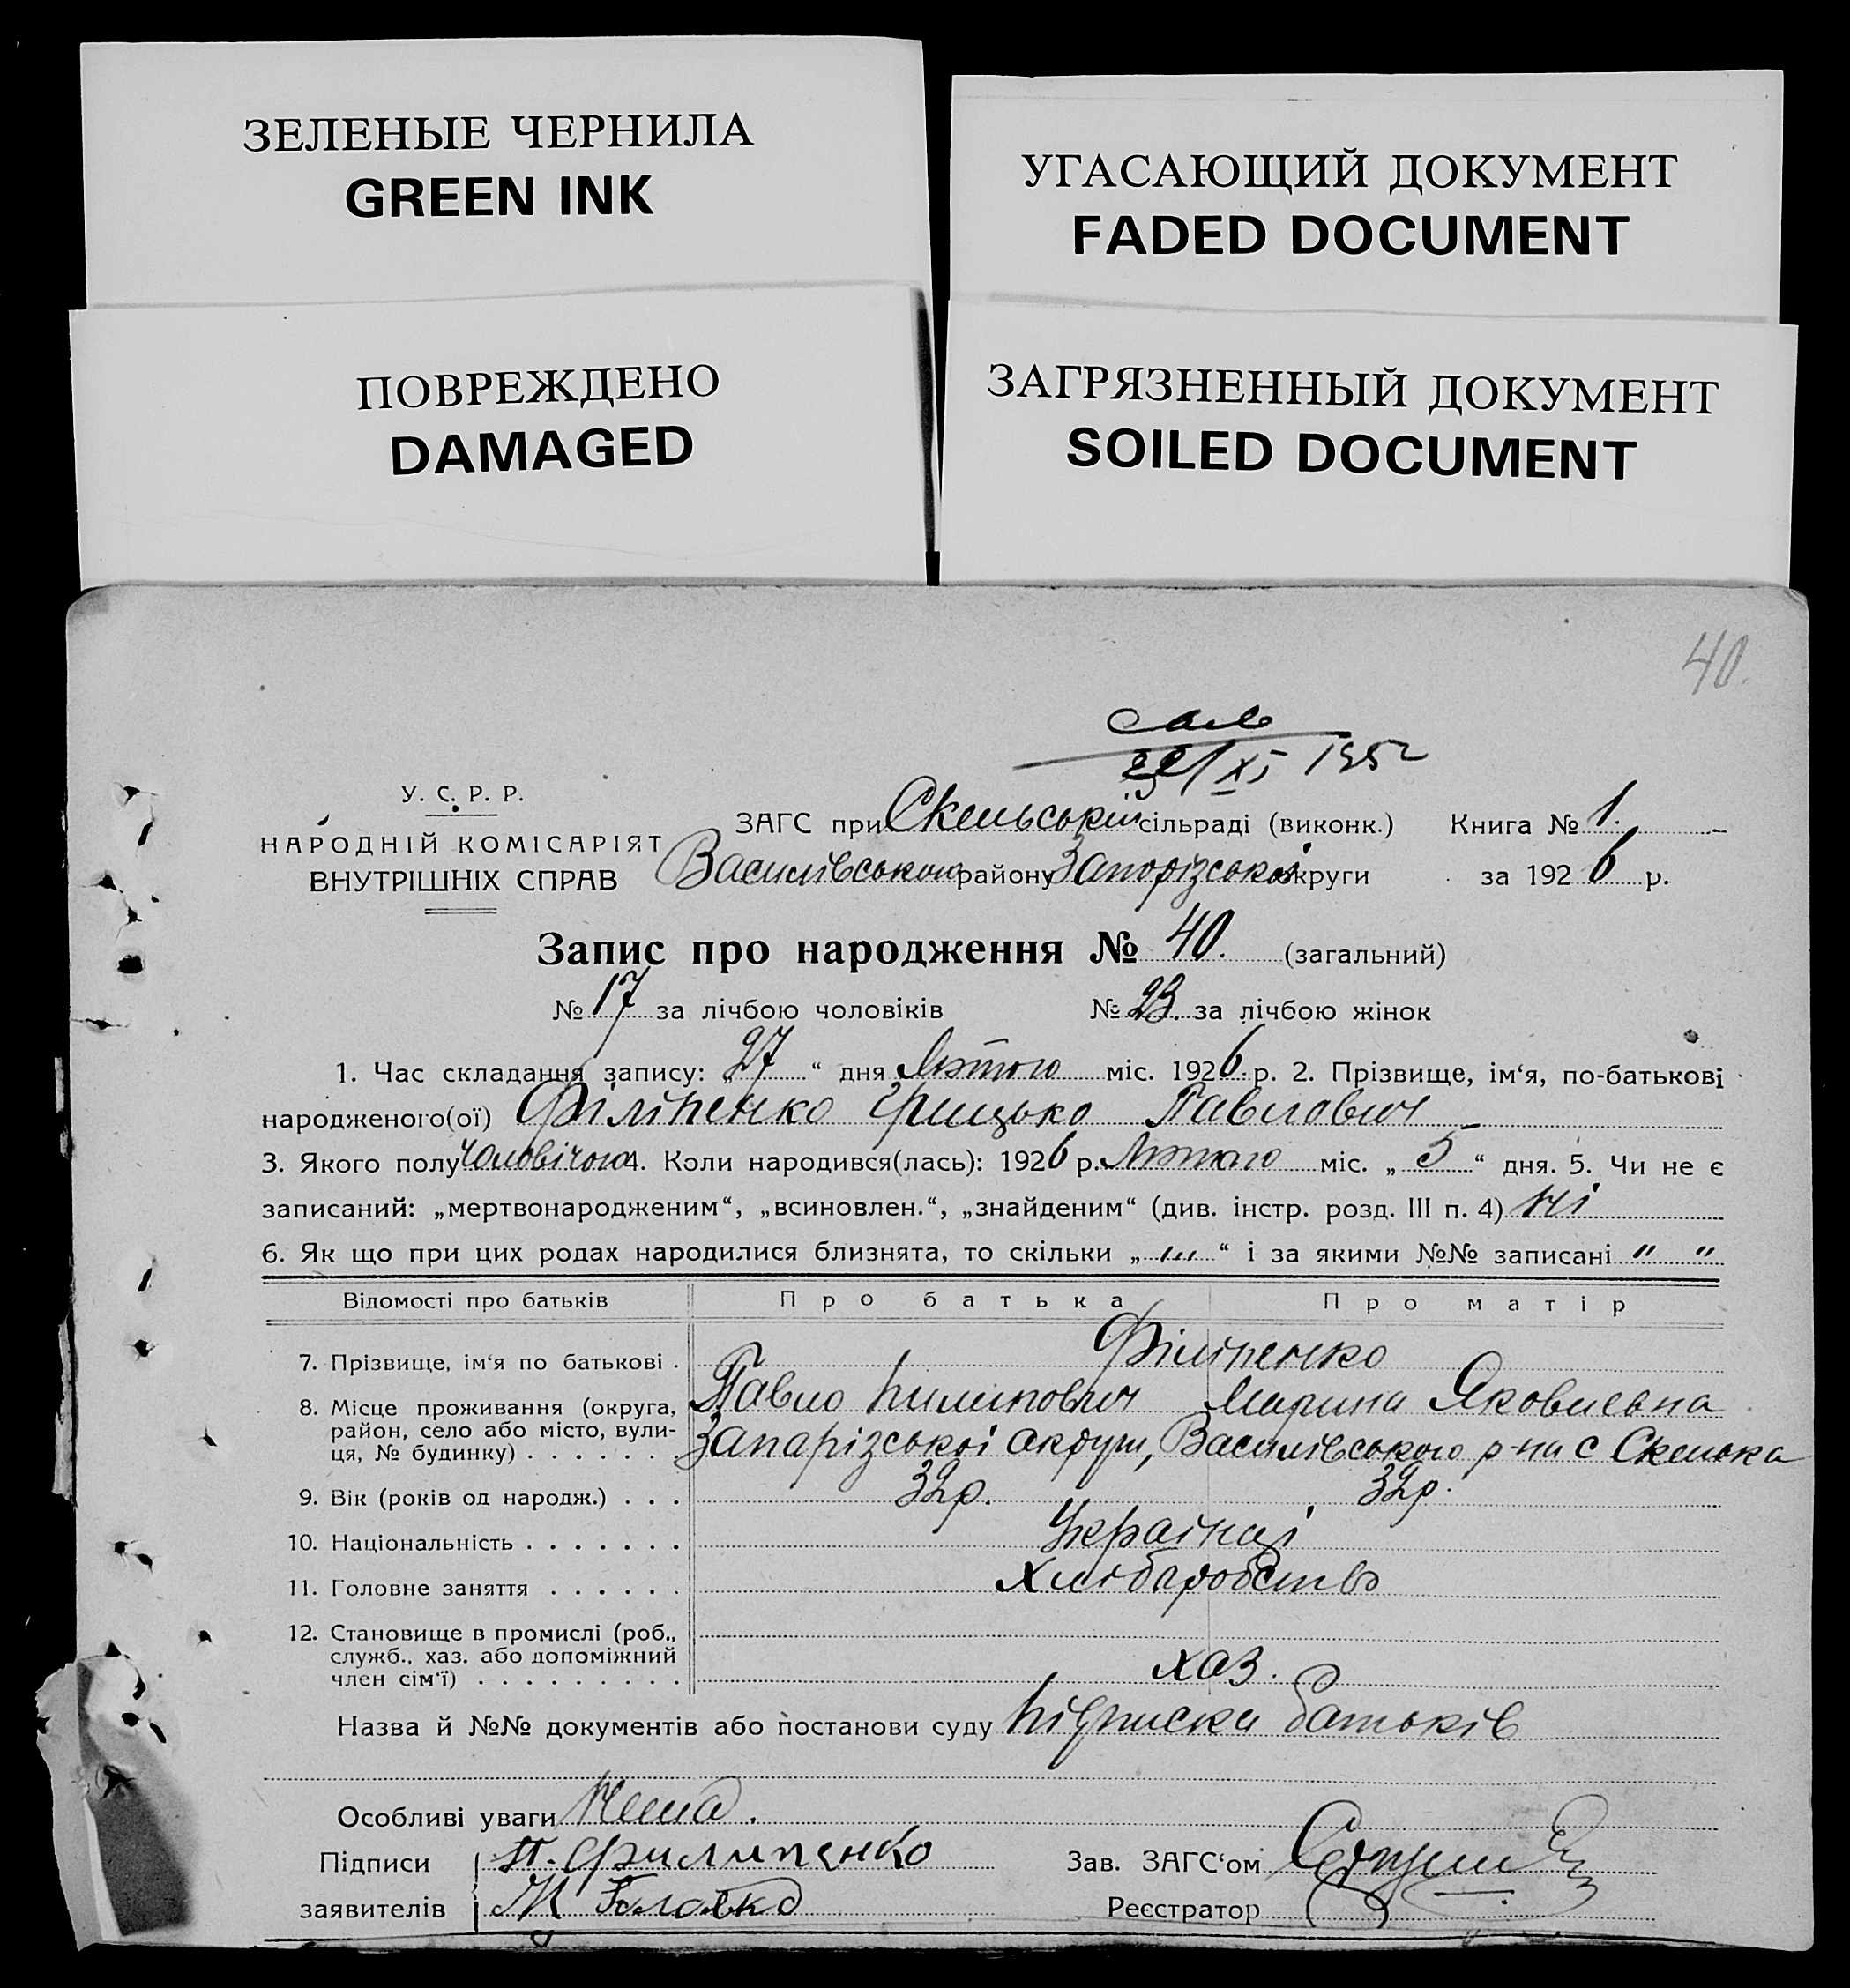 ЗЕЛЕНЫЕ ЧЕРНИЛА
GREEN INK
УГАСАЮЩИЙ ДОКУМЕНТ
FADED DOCUMENT
ПОВРЕЖДЕНО
DAMAGED
ЗАГРЯЗНЕННЫЙ ДОКУМЕНТ
SOILED DOCUMENT
40.
XI 1952
У. С. Р. Р.
НАРОДНІЙ КОМІСАРІЯТ
ВНУТРІШНІХ СПРАВ
ЗАГС при Скельській сільраді (виконк.) Книга № 1.
Василівського району Запорізської округи за 1926 р.
Запис про народження № 40. (загальний)
№ 17 за лічбою чоловіків № 23. за лічбою жінок
1. Час складання запису: „27“ дня Лютого міс. 1926 р. 2. Прізвище, ім‘я, по-батькові
народженого(ої) Філіпенко Грицько Павлович
3. Якого полу чоловічого 4. Коли народився(лась): 1926 р. Лютого міс. „5“ дня. 5. Чи не є
записаний: „мертвонародженим“, „всиновлен.“, „знайденим“ (див. інстр. розд. III п. 4) ні
6. Як що при цих родах народилися близнята, то скільки „ “ і за якими №№ записані " "
Відомості про батьків Про батька Про матір
7. Прізвище, ім‘я по батькові . Філіпенко
Павло Пилипович Марина Яковлевна
8. Місце проживання (округа, район, село або місто, вулиця, № будинку) . . . . . . . Запарізської акруги, Василівського р-на с Скелька
9. Вік (років од народж.) . . . 32р. 32р.
10. Національність . . . . . . . Українці
11. Головне заняття . . . . . . Хліборобство
12. Становище в промислі (роб., служб., хаз. або допоміжний член сім‘ї) . . . . . . . . . хаз.
Назва й №№ документів або постанови суду Підписка батьків
Особливі уваги Нема.
Підписи П. Филипенко Зав. ЗАГС‘ом
заявителів М Реєстратор